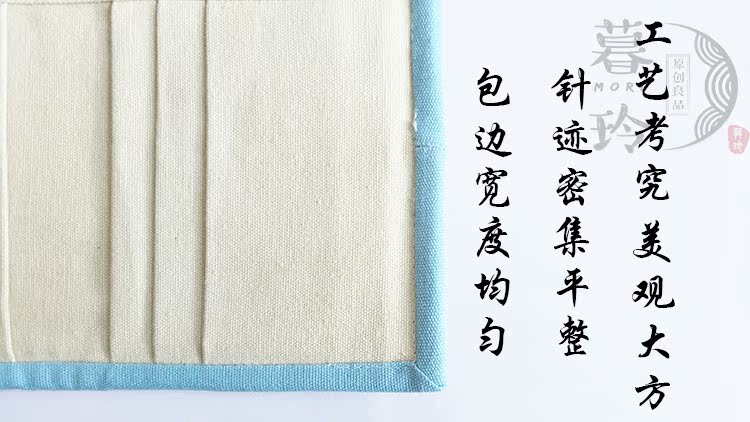 工艺考究美观大方
针迹密集平整
包边宽度均匀
暮玲
MOR
原创良品